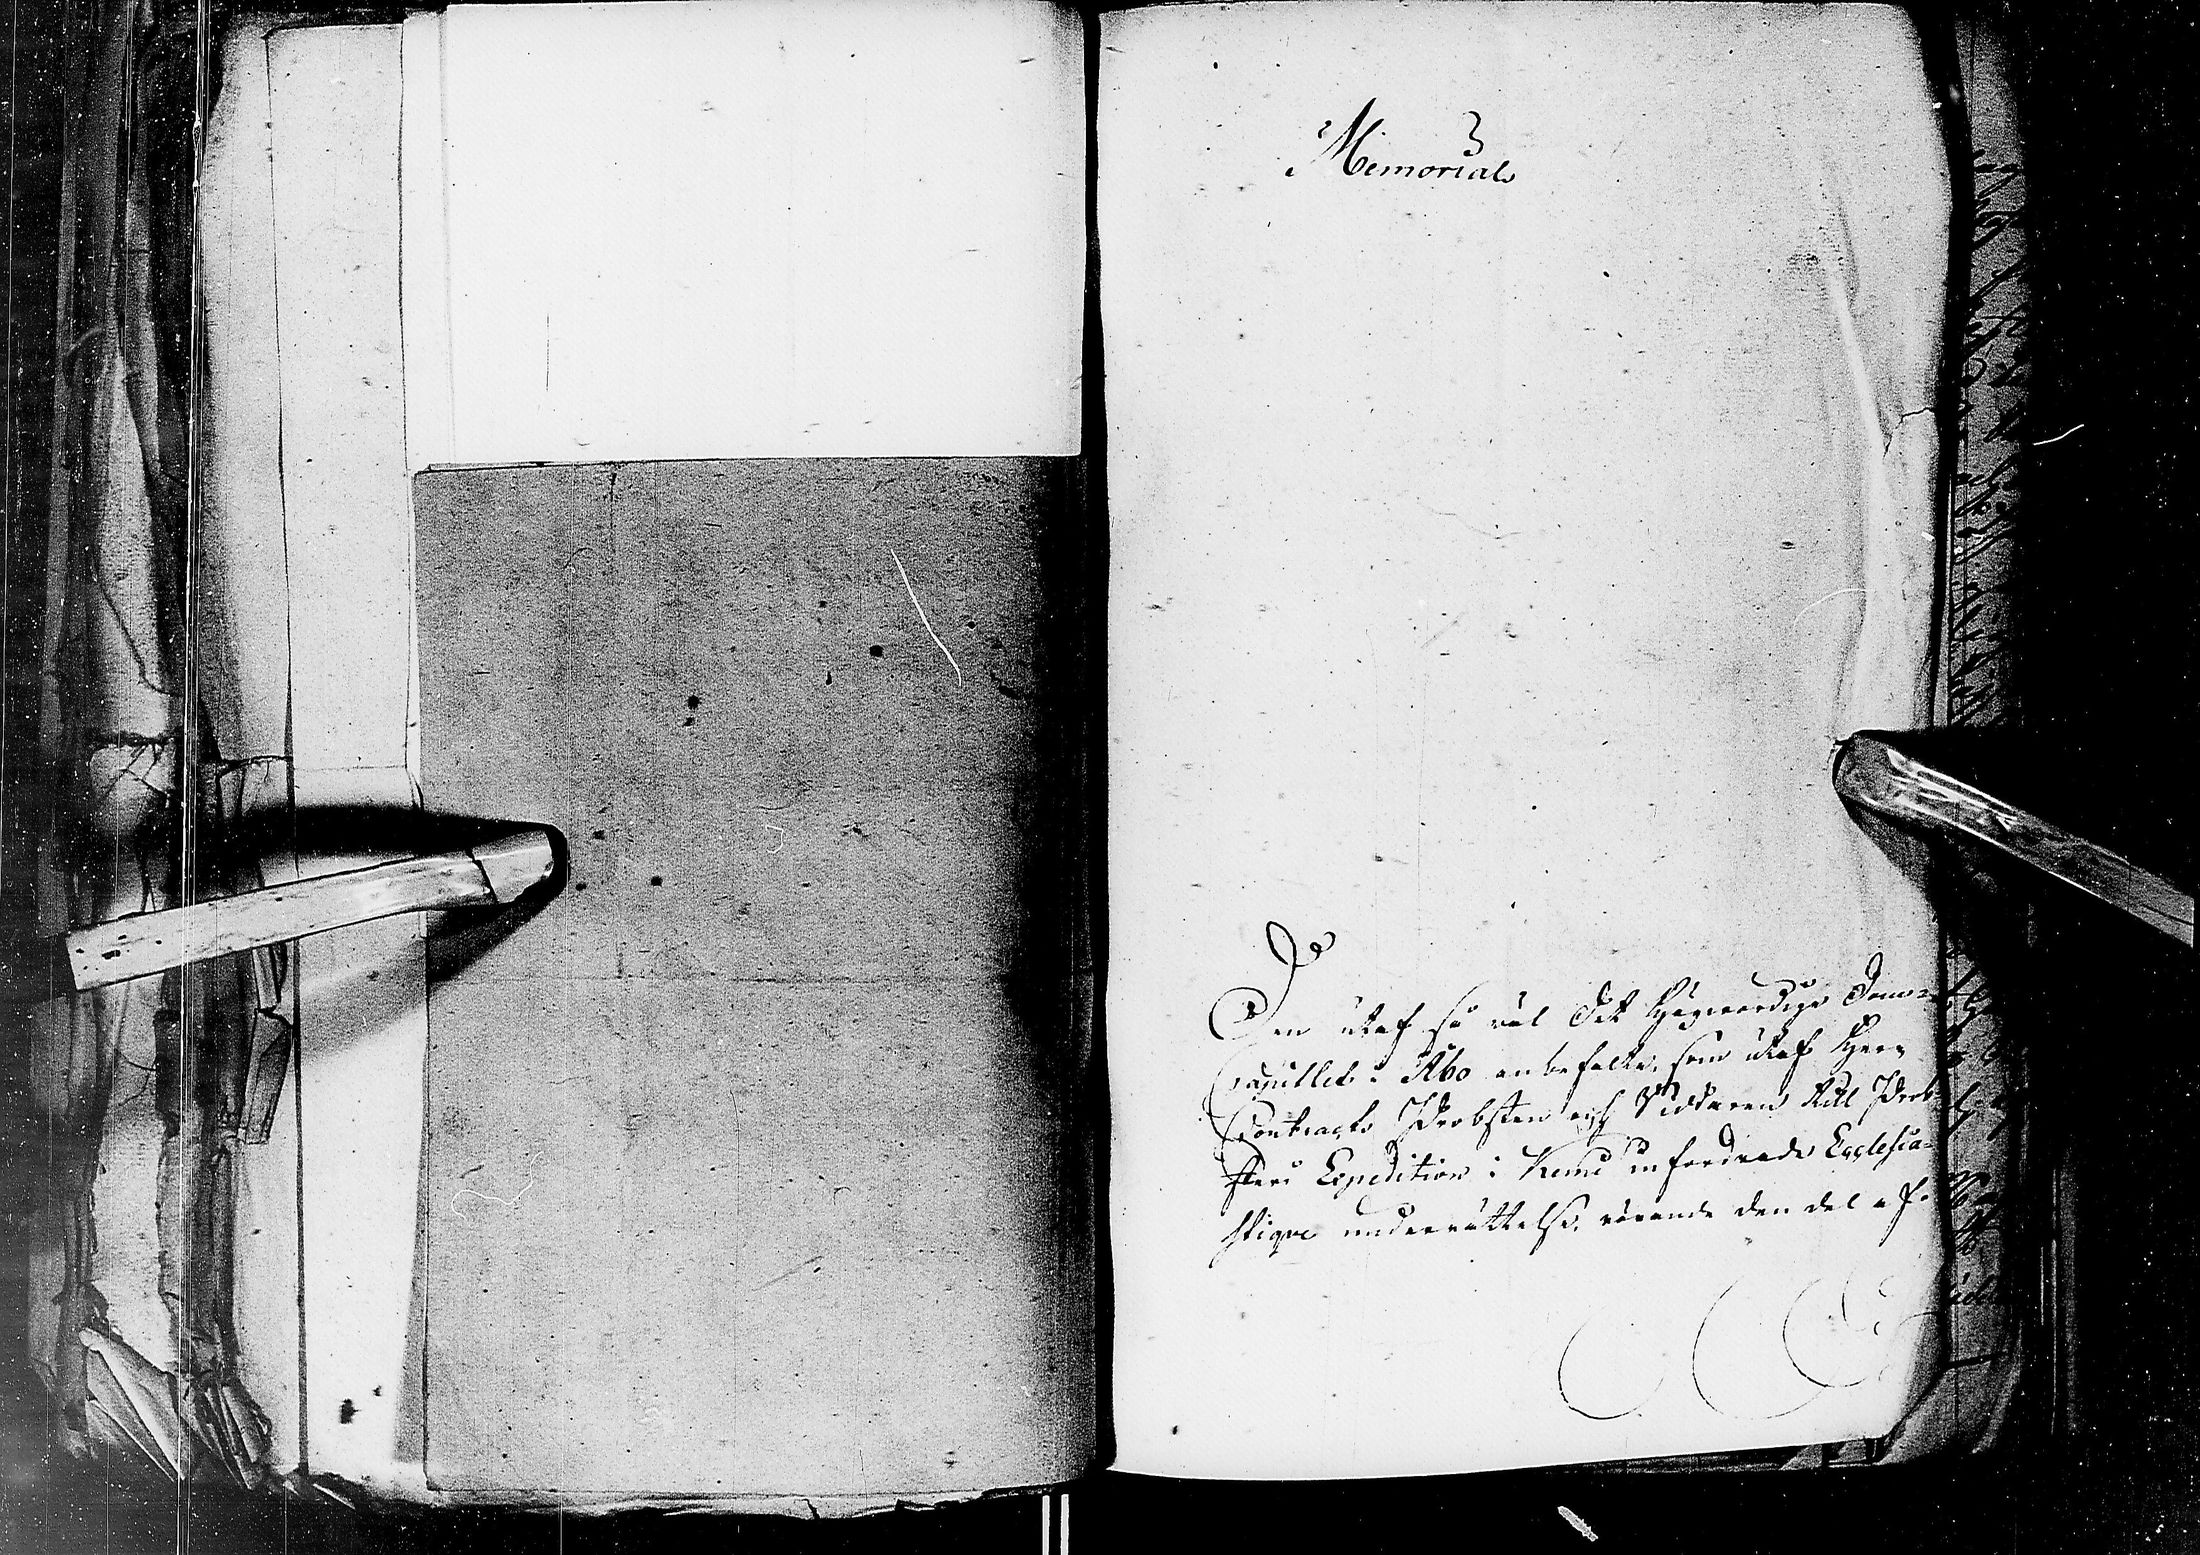 Memorial
Den utaf så väl Det Högwördige Dom=
Capitlet i Åbo anbefalte, som utaf Herr
Contracts Probsten och Riddaren till Prob=
steri Expedition i Kemi infordrade Ecclesia=
stique underrättelse, rörande den del af